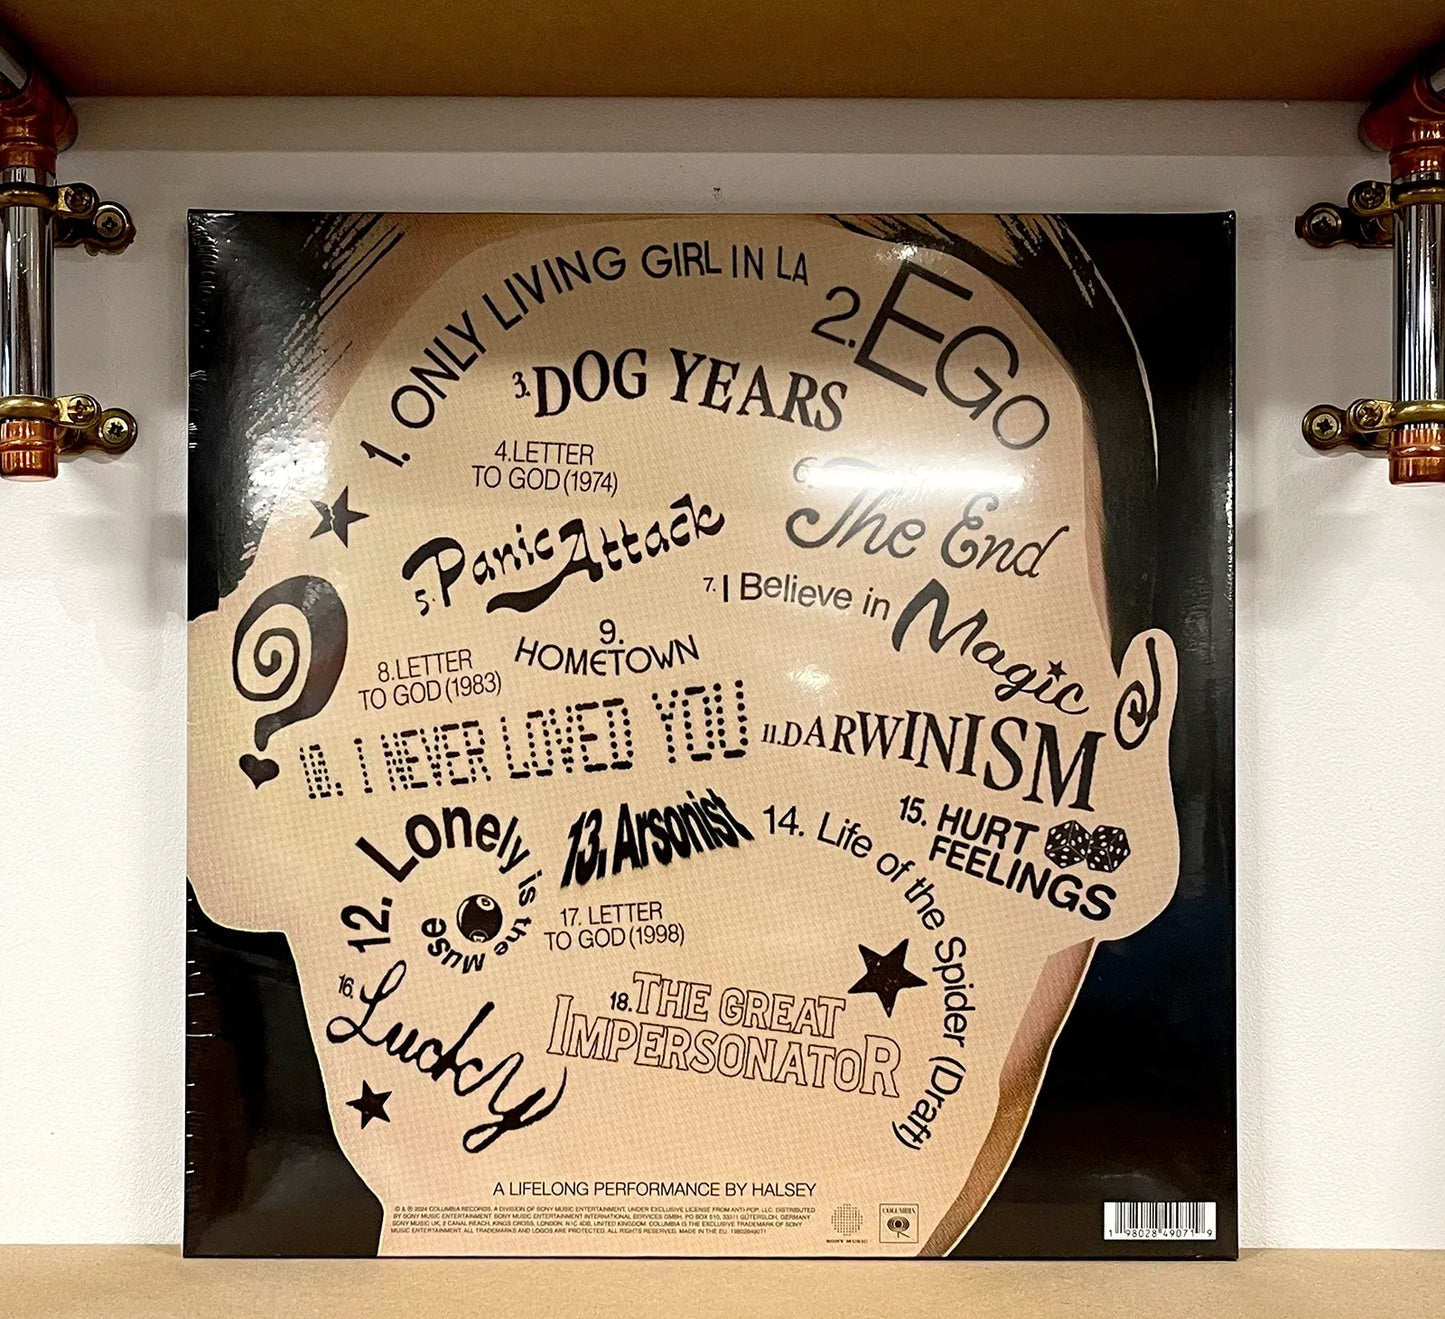 1. ONLY LIVING GIRL IN LA
2. EGO
3. DOG YEARS
4. LETTER
TO GOD (1974)
5. Panic Attack
6. The End
7. I Believe in Magic
8. LETTER
TO GOD (1983)
9.
HOMETOWN
10. I NEVER LOVED YOU
11. DARWINISM
12. Lonely is the Muse
13. Arsonist
14. Life of the Spider (Draft)
15. HURT
FEELINGS
16. Lucky
17. LETTER
TO GOD (1998)
18. THE GREAT
IMPERSONATOR
A LIFELONG PERFORMANCE BY HALSEY
© & ℗ 2024 COLUMBIA RECORDS, A DIVISION OF SONY MUSIC ENTERTAINMENT, UNDER EXCLUSIVE LICENSE FROM ANTI-POP, LLC. DISTRIBUTED
BY SONY MUSIC ENTERTAINMENT. SONY MUSIC ENTERTAINMENT INTERNATIONAL SERVICES GMBH, PO BOX 510, 33311 GÜTERSLOH, GERMANY
SONY MUSIC UK, 2 CANAL REACH, KINGS CROSS, LONDON, N1C 4DB, UNITED KINGDOM. COLUMBIA IS THE EXCLUSIVE TRADEMARK OF SONY
MUSIC ENTERTAINMENT. ALL TRADEMARKS AND LOGOS ARE PROTECTED. ALL RIGHTS RESERVED. MADE IN THE EU. 19802849071
SONY MUSIC
COLUMBIA
1 98028 49071 9